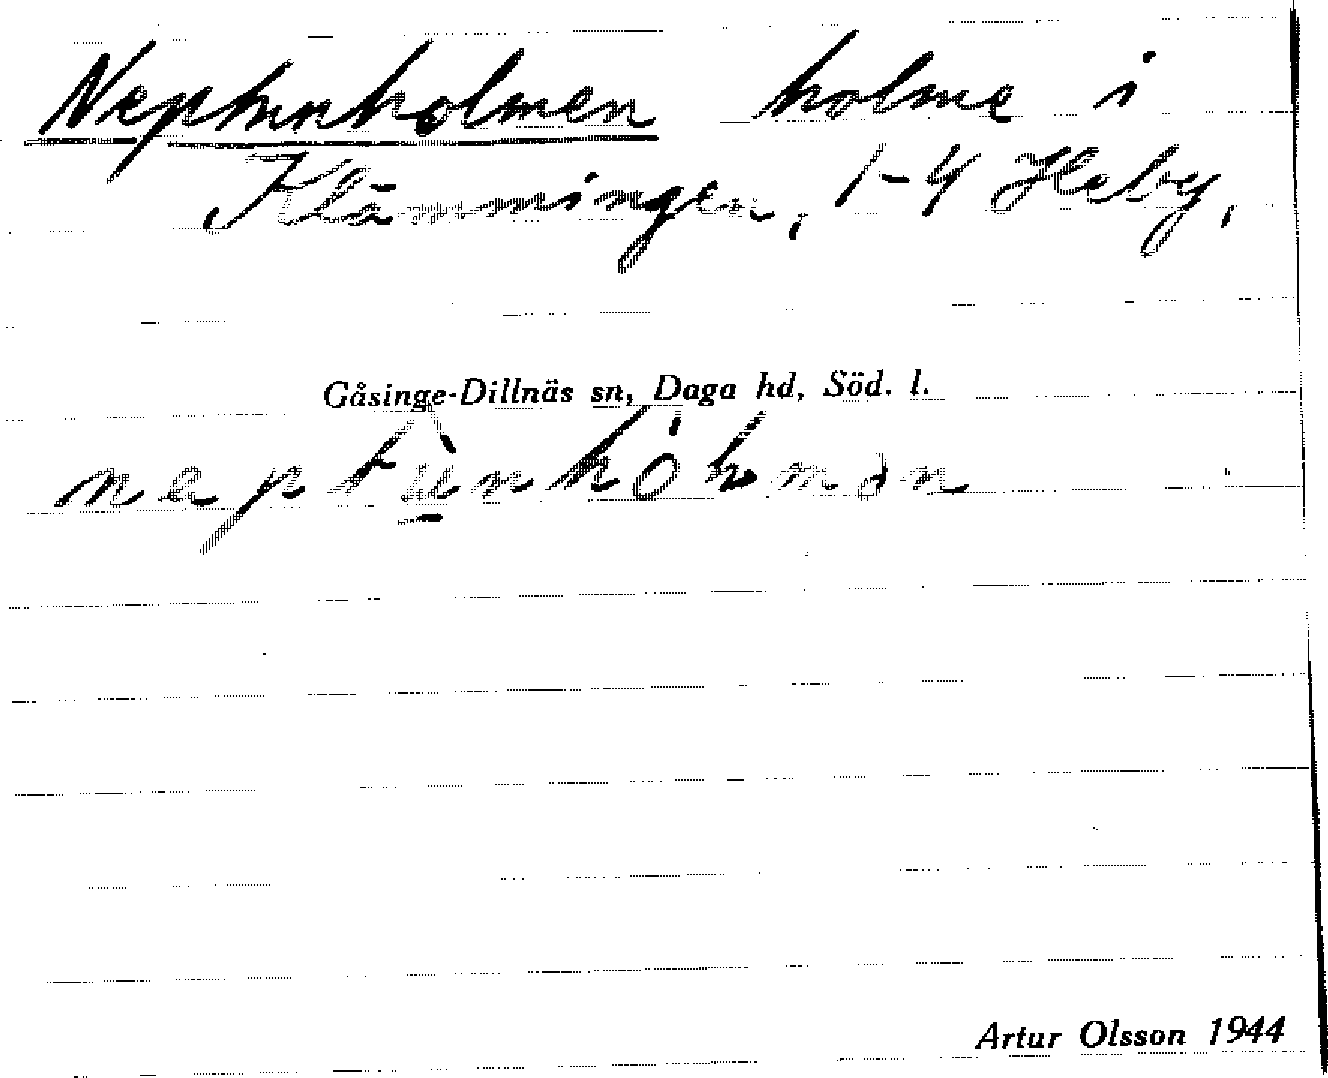 Neptunholmen holme i
Klämmingen, 1-4 Heby,
Gåsinge-Dillnäs sn, Daga hd, Söd. l.
Artur Olsson 1944